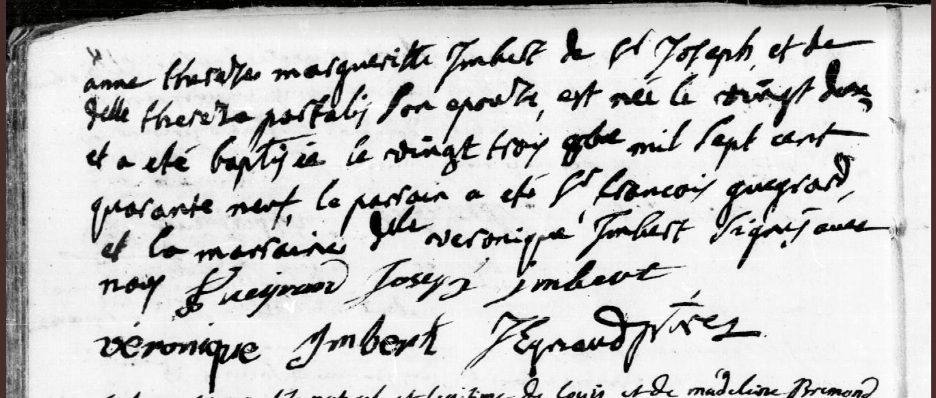 anne thereze margueritte Imbert de Sr Joseph et de
delle thereze portalis son epouze, est née le vingt deux
et a eté baptisée le vingt trois 9bre mil sept cent
quarante neuf, le parain a eté Sr francois gueyrard,
et la marraine delle veronique Imbert signés avec
nous Gueyrard Joseph Imbert
véronique Imbert
de Louis et de madeleine Bremond